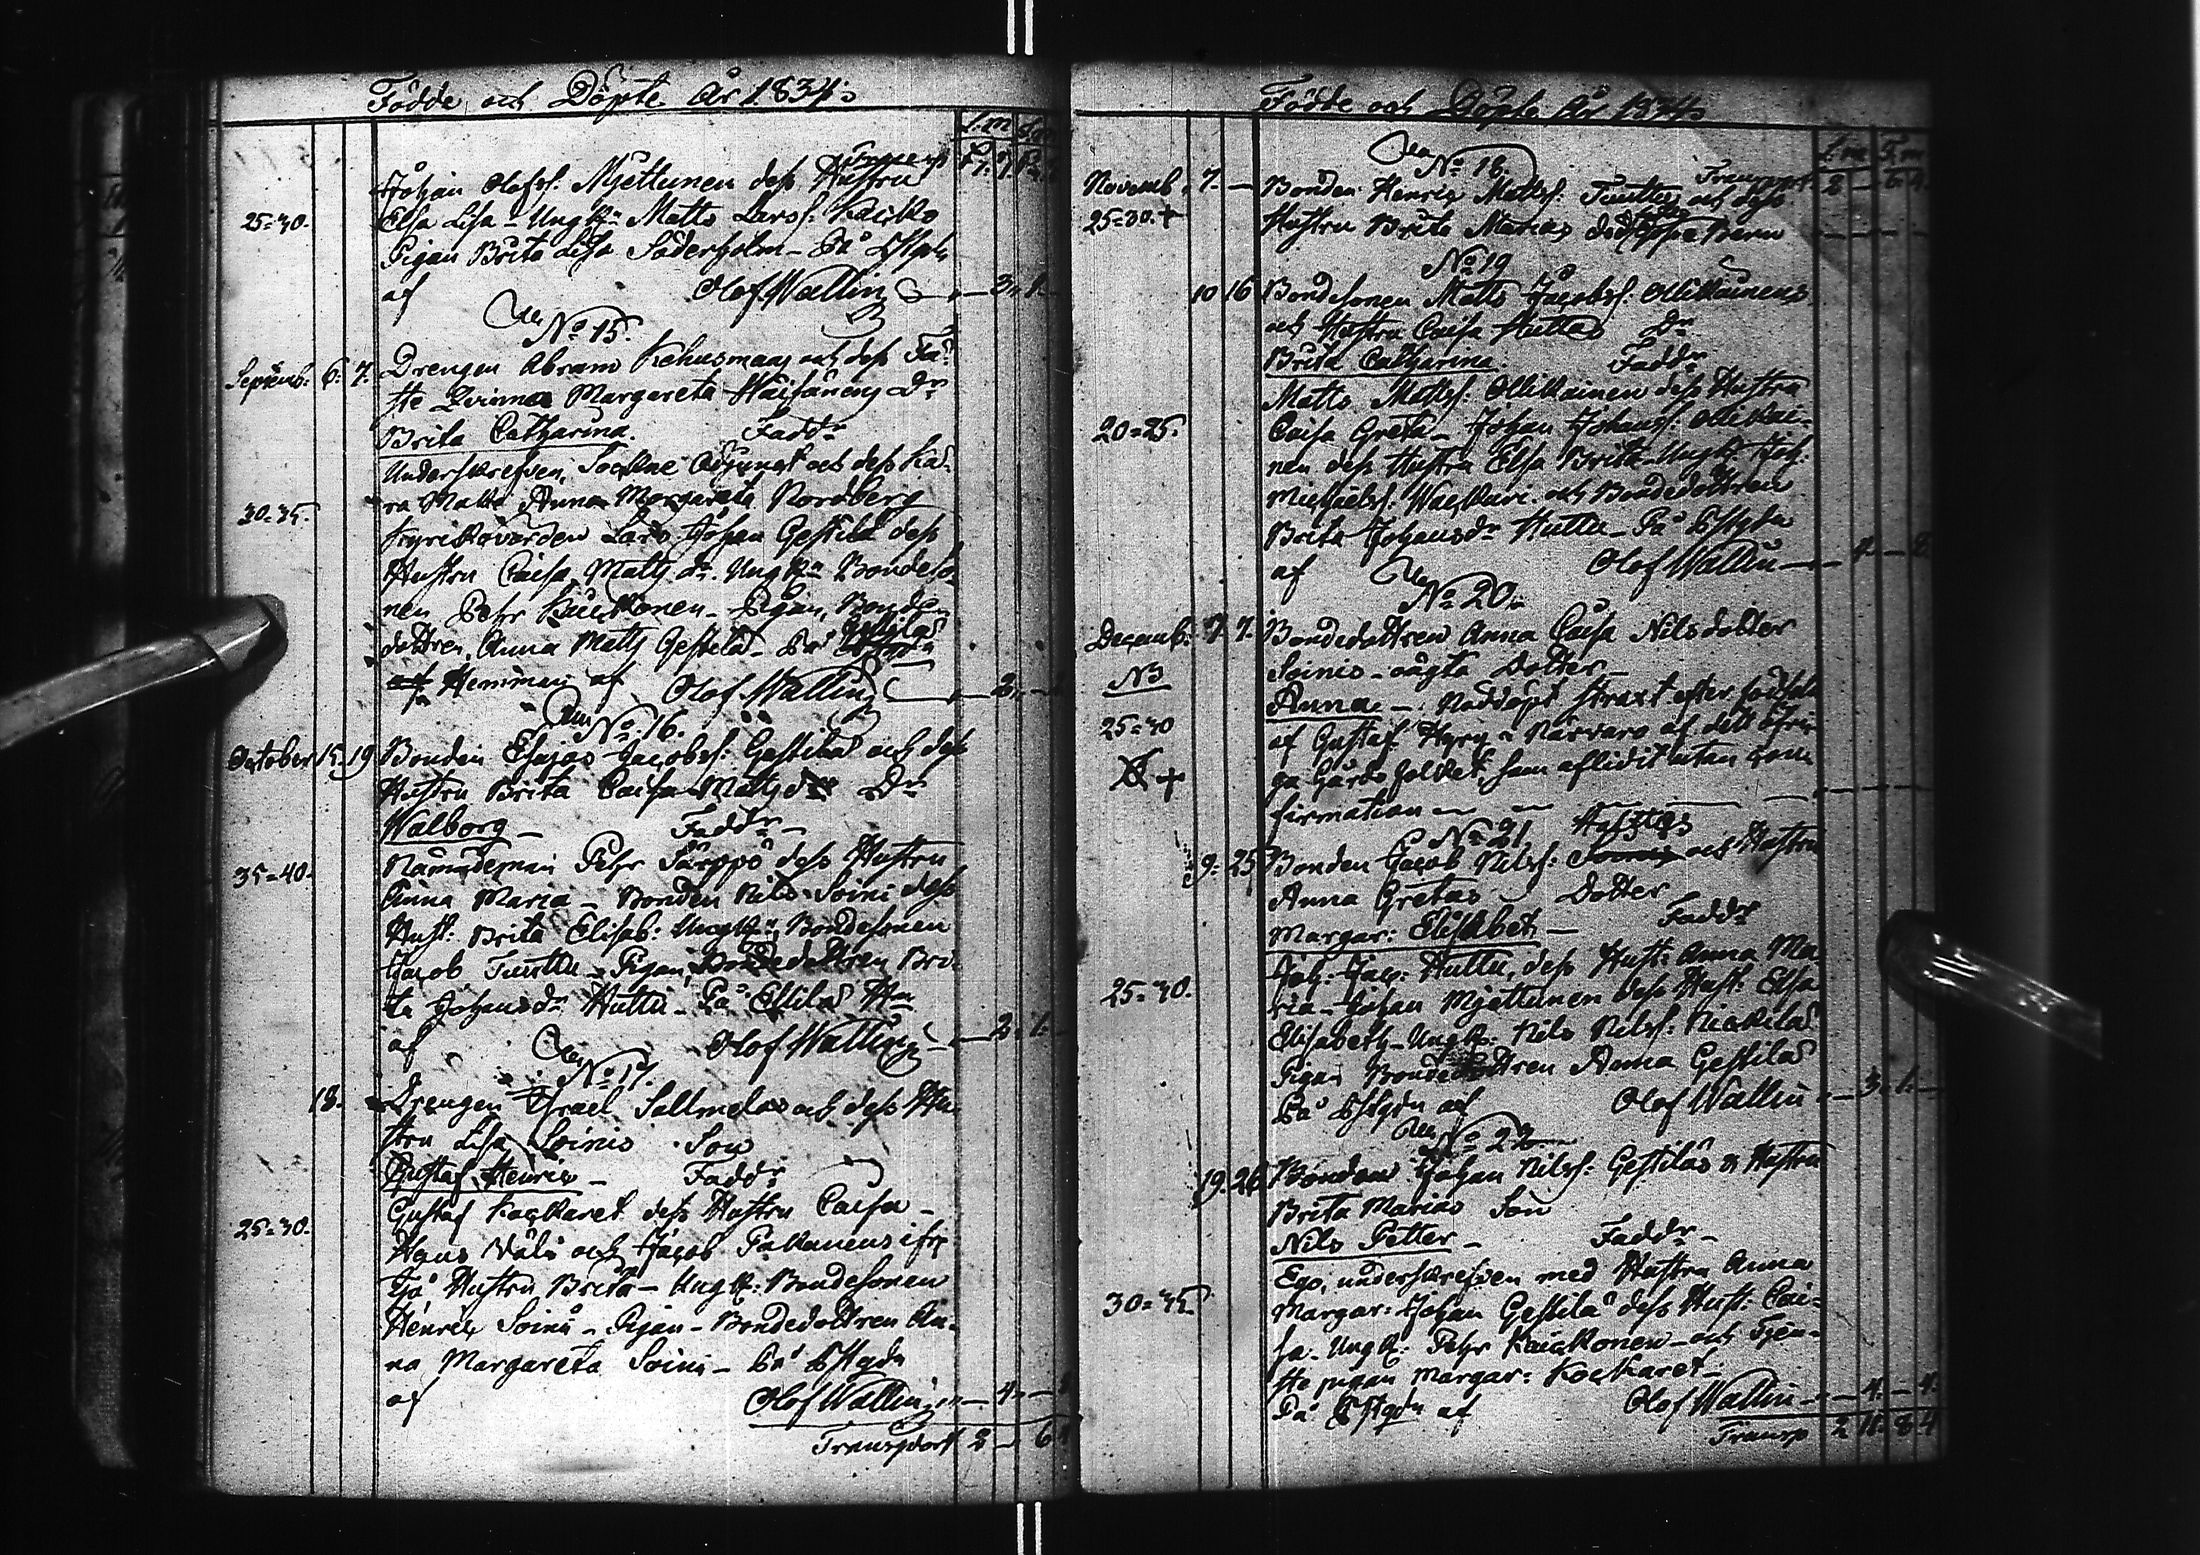 Födde och Döpte År 1834.
Transp
Johan Olofss: Mjettunen dess Hustru
25=30. Elsa Lisa - Ungk:n Matts Larss: Kaicko
Pigan Brita Lisa Söderholm - På
af Olof Wallin 3. 1.
No 15.
Septemb: 6. 7. Drengen Abram Kehusmaas och dess Fä-
ste Qvinnas Margareta Haisanens Dr
Brita Catharina. Faddr
Underskrefven, Sockne Adjunct och dess Kä-
30-35. ra Maka Anna Margareta Nordberg
Kyrckovärden Lars Johan Gestilä dess
Hustru Caisa Matts dr. Ungk:n Bondeso-
nen Pehr Kauckonen - Pigan, Bonde
dottren, Anna Matts Gestilä - På Estilä
Hemman af Olof Wallin 2.
No 16.
October 15. 19 Bonden Esajas Jacobss: Gestiläs och dess
Hustru Brita Caisa Matts dr Dr
Walborg - Faddr -
35=40. Nämndeman Pehr Särppö dess Hustru
Anna Maria - Bonden Nils Soini dess
Hust: Brita Elisab: Ungk:n Bondesonen
Jacob Tuuttu - Pigan Bondedottren Bri-
ta Johansdr Huttu - På Estilä Hn
af Olof Wallin 2. 1.
No 17.
18. Drengen Israel Sallmelas och dess Hu-
stru Lisa Soinis Son
Gustaf Henric - Faddr
25=30. Gustaf Kockaret dess Hustru Caisa -
Hans Väli och Jacob Pakanens ifr:
Hustru Brita - Ungk: Bondesonen
Henric Soini - Pigan - Bondedottren An-
na Margareta Soini - På
af Olof Wallin 4.
Transport 2 - 6
Födde och Döpte År 1834.
No 18. Transport 2 - 6. 4.
Novemb. 7. - Bonden Henric Mattss: Tuuttus och dess
25=30. + Hustru Brita Marias dödfödda Barn
No 19
10 16 Bondesonen Matts Jacobss: Ollikainens
och Hustru Caisa Huttus Dr
Brita Catharina. Faddr
Matts Mattss: Ollikainen dess Hustru
20=25. Caisa Greta - Johan Johanss: Ollikai-
nen dess Hustru Elsa Brita - Ungk: Joh:
Michelss: Wackuri och Bondedottren
Brita Johansdr Huttu - På
af Olof Wallin
No 20.
Decemb. 7. 7. Bondedottren Anna Caisa Nilsdotter
Soinis oägta Dotter
Anna - Nöddöpt straxt efter födseln
25=30 af Gustaf Hyry n närvaro af det öfri-
+ ga Gårds folket, som aflidit utan con-
firmation
No 21. Huttus
9. 25 Bonden Jacob Nilss: och Hustru
Anna Gretas Dotter
Margar: Elisabet - Faddr
Joh: Jac: Huttu, dess Hust: Anna Ma-
25=30. ria - Johan Mjettunen dess Hust: Elsa
Elisabeth - Ungk: Nils Nilss: Nickilä
Pigan Bondedottren Anna Gestilä
På af Olof Wallin 3. 1.
No 22
19. 26 Bonden Johan Nilss: Gestiläs & Hustru
Brita Marias Son
Nils Petter - Faddr -
Ego, underskrefven med Hustru Anna
30=35 Margar: Johan Gestilä dess Hust: Cai-
sa - Ungk: Pehr Kauckonen och Tjen-
ste pigan Margar: Kockaret -
På af Olof Wallin 4. - 4.
Transp 2 11. 8 4